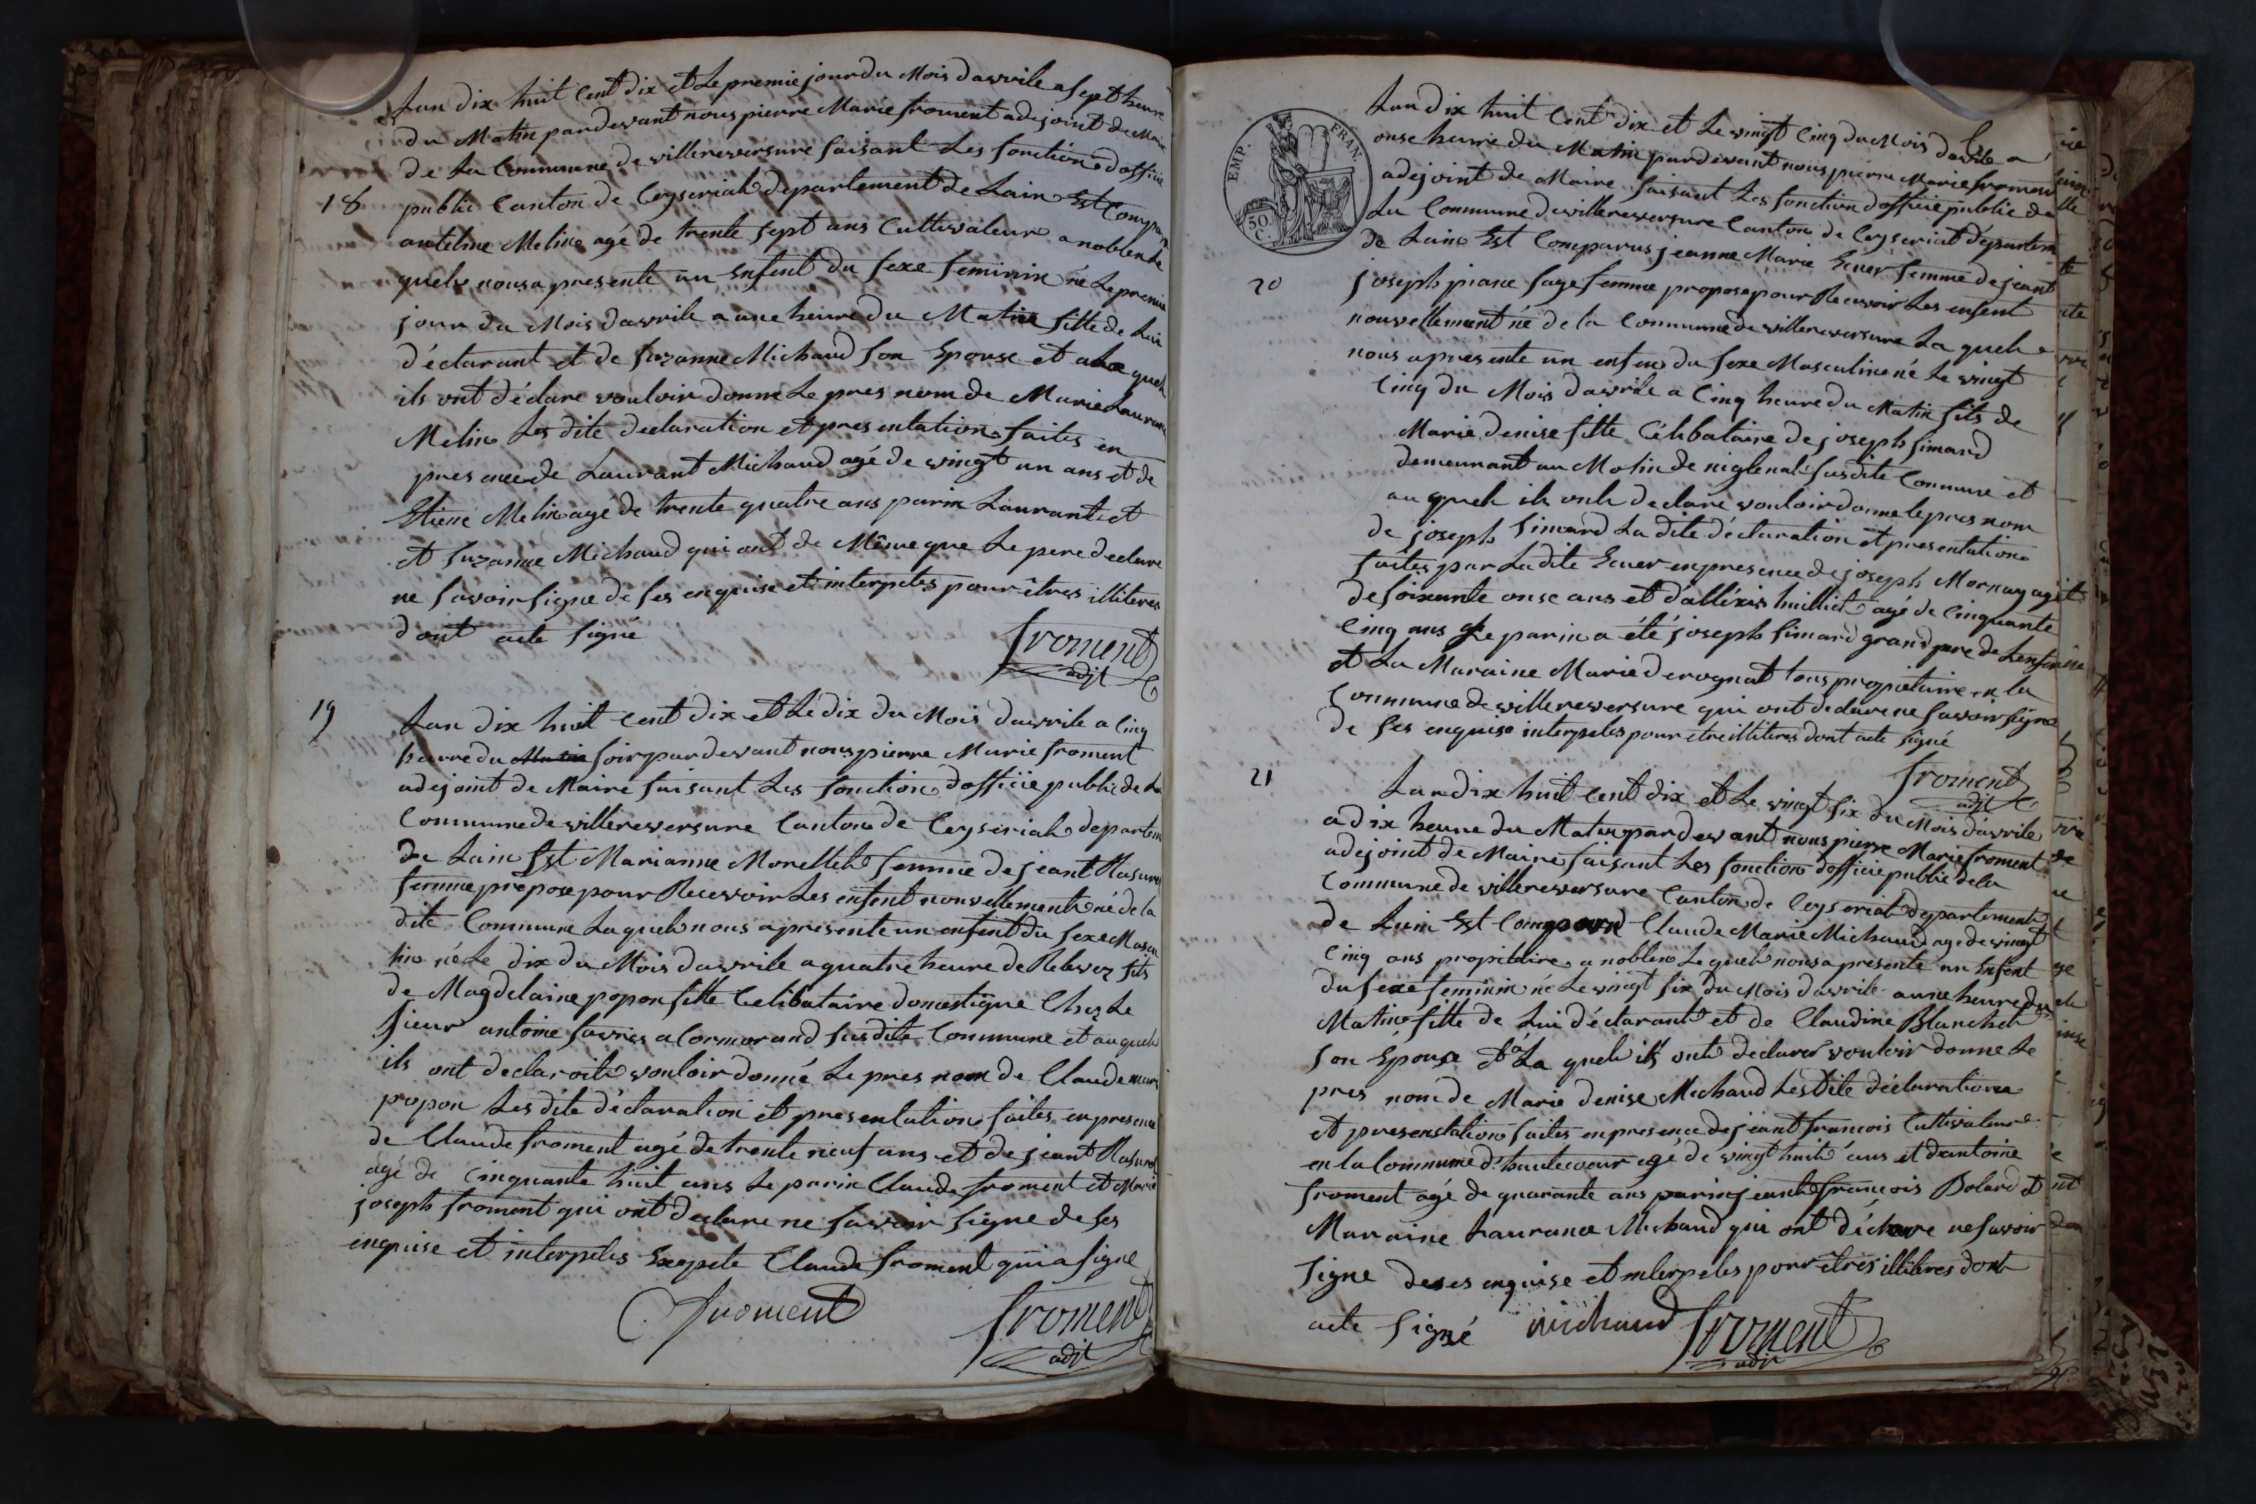 Lan dix huit Cent dix et Le premie jour du Mois davrile a sept heure
du Matin pardevant nous pierre Marie froment adejoint de Maire
de La Commune de villereversure faisant Les fonction d'officie
18
public Canton de Ceyseriah departement de Lain Est Compar
antelme Meline agé de trente sept ans Cultivateur a noblen Le
queh nous a presente un Enfent du sexe feminin né Le premie
jour du Mois davrile a une heure du Matin fille de Lui
d'éclarant et de suzanne Michaud son Epouse et a La queh
ils ont d'éclare vouloir donne Le pres nom de Marie Laurence
Melin Les dite declaration et presentation faites en
presence de Laurant Michaud agé de vingt un ans et de
Etiene Melin agé de trente quatre ans parin Laurant et
et suzanne Michaud qui ont de Même que Le pere declare
ne savoir signe de ses enquise et interpeles pour êtres illiteres
dont acte signé
froment
adjt
19
Lan dix huit cent dix et Le dix du Mois davrile a Cinq
heure du Matin soir pardevant nous pierre Marie froment
adejoint de Maire faisant Les fonction d'officie public de La
Commune de villereversure Canton de Ceyseriah departem
de Lain Est Marianne Morelleh femme de jeant Masure
femme prepose pour Recevoir Les enfent nouvellement né de la
dite Commune Laqueh nous a presente un enfent du sexe Mascu
lin né Le dix du Mois davrile a quatre heure de Relevez fils
de Magdelaine popon fille Celibataire domestique Chez Le
sieur antoine favres a Cormorand susdite Commune et auqueh
ils ont declaroite vouloir donné Le pres nom de Claude marie
popon Les dite d'éclaration et presentation faites en presence
de Claude froment agé de trente neuf ans et de jeant Masure
agé de Cinquante huit ans Le parin Claude froment et Marie
joseph froment qui ont declare ne savoir signe de ses
enquise et interpeles Exepete Claude froment qui a signe
C froment
froment
adjt
EMP. FRAN.
50 C.
Lan dix huit Cent dix et Le vingt Cinq du Mois davrile a
onse heure du Matin pardevant nous pierre Marie froment
adejoint de Maire faisant Les fonction d'officie public de
La Commune de villereversure Canton de Ceyseriat départem
de Lain Est Comparus jeanne Marie Ecuer femme de jeant
20
joseph piance sage femme propose pour Recevoir Les enfent
nouvellement né de la Commune de villereversure La queh
nous a presente un enfen du sexe Masculine né Le vingt
Cinq du Mois davrile a Cinq heure du Matin fils de
Marie denise fille Célibataire de joseph simard
demeurant au Molin de niglenal susdite Commune et
au queh ils onh declare vouloir donne le pres nom
de joseph simard La dite d'éclaration et presentation
faites par La dite Ecuer en presence de joseph Mornay agé
de soixante onse ans et d'alléxis huilliet agé de Cinquante
Cinq ans Le parin a été joseph simard grand pere de Lenfen
et La Maraine Marie derognat tous propiétaire en la
Commune de villereversure qui ont declare ne savoir signe
de ses enquise interpeles pour etre illiteres dont acte signé
froment
adjt
21
Lan dix huit cent dix et Le vingt six du Mois d'avrile
a dix heure du Matin pardevant nous pierre Marie froment
adejoint de Maire faisant Les fonction d'officie public de la
Commune de villereversure Canton de Ceyseriat departement
de Lain Est Comparu Claude Marie Michaud age de vingt
Cinq ans propietaire a noblen Le queh nous a presente un Enfent
du sexe feminin né Le vingt six du Mois davrile a une heure du
Matin fille de Lui d'éclarant et de Claudine Blancheh
son Epouse et a La queh ils ont declarer vouloir donne Le
pres nom de Marie denise Michaud Les dite d'éclaration
et presenstation faites en presence de jeant francois Cultivateur
en la Commune d'hautecour agé de vingt huit ans et d'antoine
froment agé de quarante ans parin jeant francois Bolard et
Maraine Laurance Michaud qui ont d'éclare ne savoir
signe de ses enquise et interpeles pour êtres illiteres dont
acte signé
michaud
froment
adjt